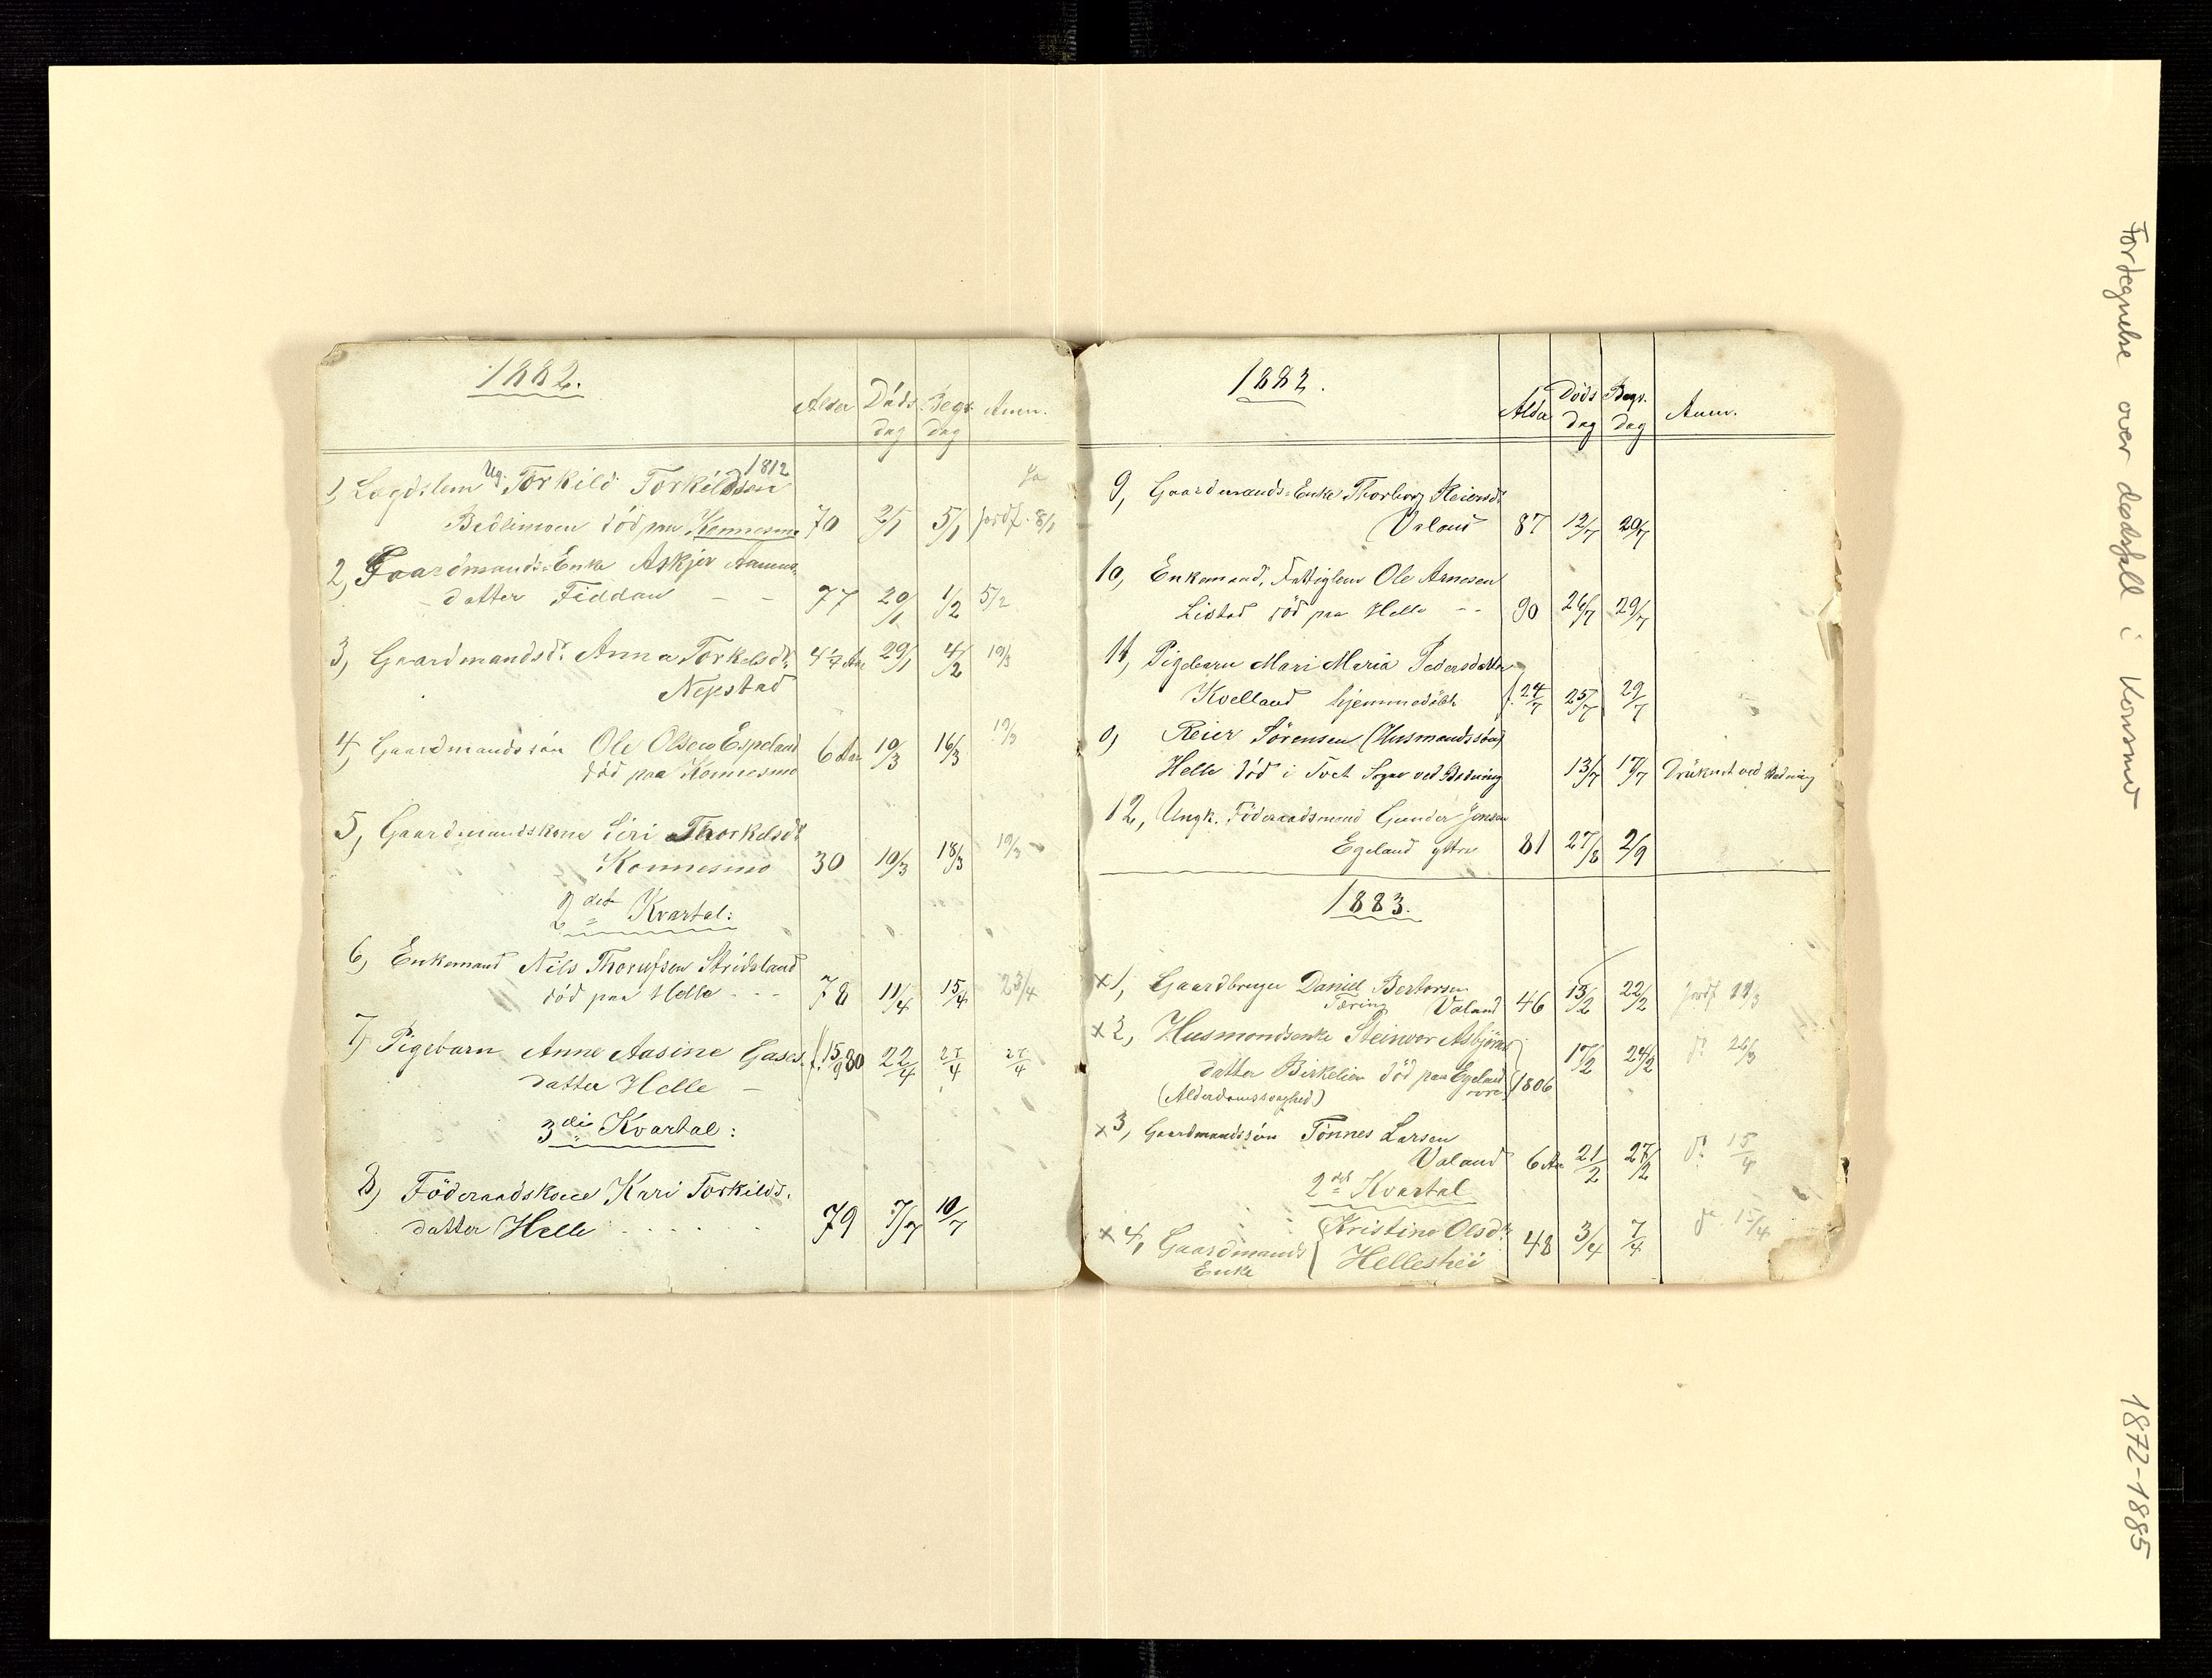 1882.
Alder Døds Begr. Anm.
dag dag
1812
1, Lægdslem Ug. Torkild Torkildsen Ja
død paa Konnesmo 70 2/1 5/1 Jordf. 8/1
2, Gaardmands-Enke Askjer
datter Fiddan - - 77 20/1 1/2 5/2
3, Gaardmandsdr. Anna Torkelsdr. 4 1/2 Aar 29/1 4/2 19/3
Nepstad
4, Gaardmandssøn Ole Olsen Espeland 6 Aar 10/3 16/3 19/3
død paa Konnesmo
5, Gaardmandskone Siri Thorkelsdr
Konnesmo 30 10/3 18/3 19/3
2det Kvartal:
6, Enkemand Nils Stridsland
død paa Helle - - - 78 11/4 15/4 23/4
7, Pigebarn Anne Aasine f. 15/9 80 22/4 27/4 27/4
datter Helle -
3die Kvartal:
8, Föderaadskone Kari Torkilds.
datter Helle 79 7/7 10/7
1882.
Alder Døds Begr. Anm.
dag dag
9, Gaardmands-Enke Thorborg Reiersdr
Valand 87 12/7 20/7
10, Enkemand, Fattiglem Ole Arnesen
Listad död paa Helle - - 90 26/7 29/7
11, Pigebarn Mari Maria Pedersdatter
Kvelland hjemmedöbt f. 24/7 25/7 29/7
0, Reier Sörensen (Husmandssøn)
Helle död i Tvet Sogn ved Badning 13/7 17/7 Druknet ved Badning
12, Ungk. Föderaadsmand Gunder Jensen
Egeland ytre 81 27/8 2/9
1883.
x 1, Gaardbruger Daniel Bertorsen
Tæring Valand 46 13/2 22/2 Jordf
x 2, Husmandsenke Steinvor Asbjörns
datter Birkelien död paa Egeland 1806 17/2 24/2 do 26/3
(Alderdomssvaghed)
x 3, Gaardmandssön Tönnes Larsen
Valand 6 Aar 21/2 27/2 do 15/4
2det Kvartal
x 4, Gaardmands Kristine Olsdr. 48 3/4 7/4 do 15/4
Enke Helleshei
Fortegnelse over dødsfall i Konsmo
1872-1885